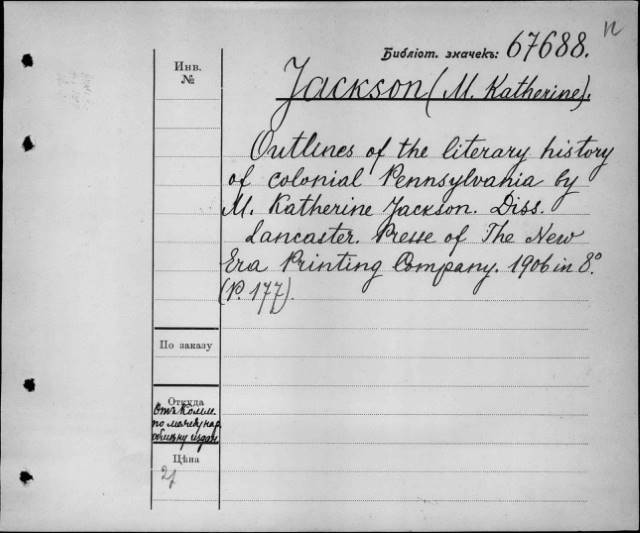 n
Библіот. значекъ: 67688.
Инв.
№
Jackson (M. Katherine).
Outlines of the literary history
of colonial Pennsylvania by
M. Katherine Jackson. Diss.
Lancaster. Presse of The New
Era Printing Company. 1906 in 8°.
(P. 177).
По заказу
Откуда
Отъ Комм.
по междунар.
обмѣну издан.
Цѣна